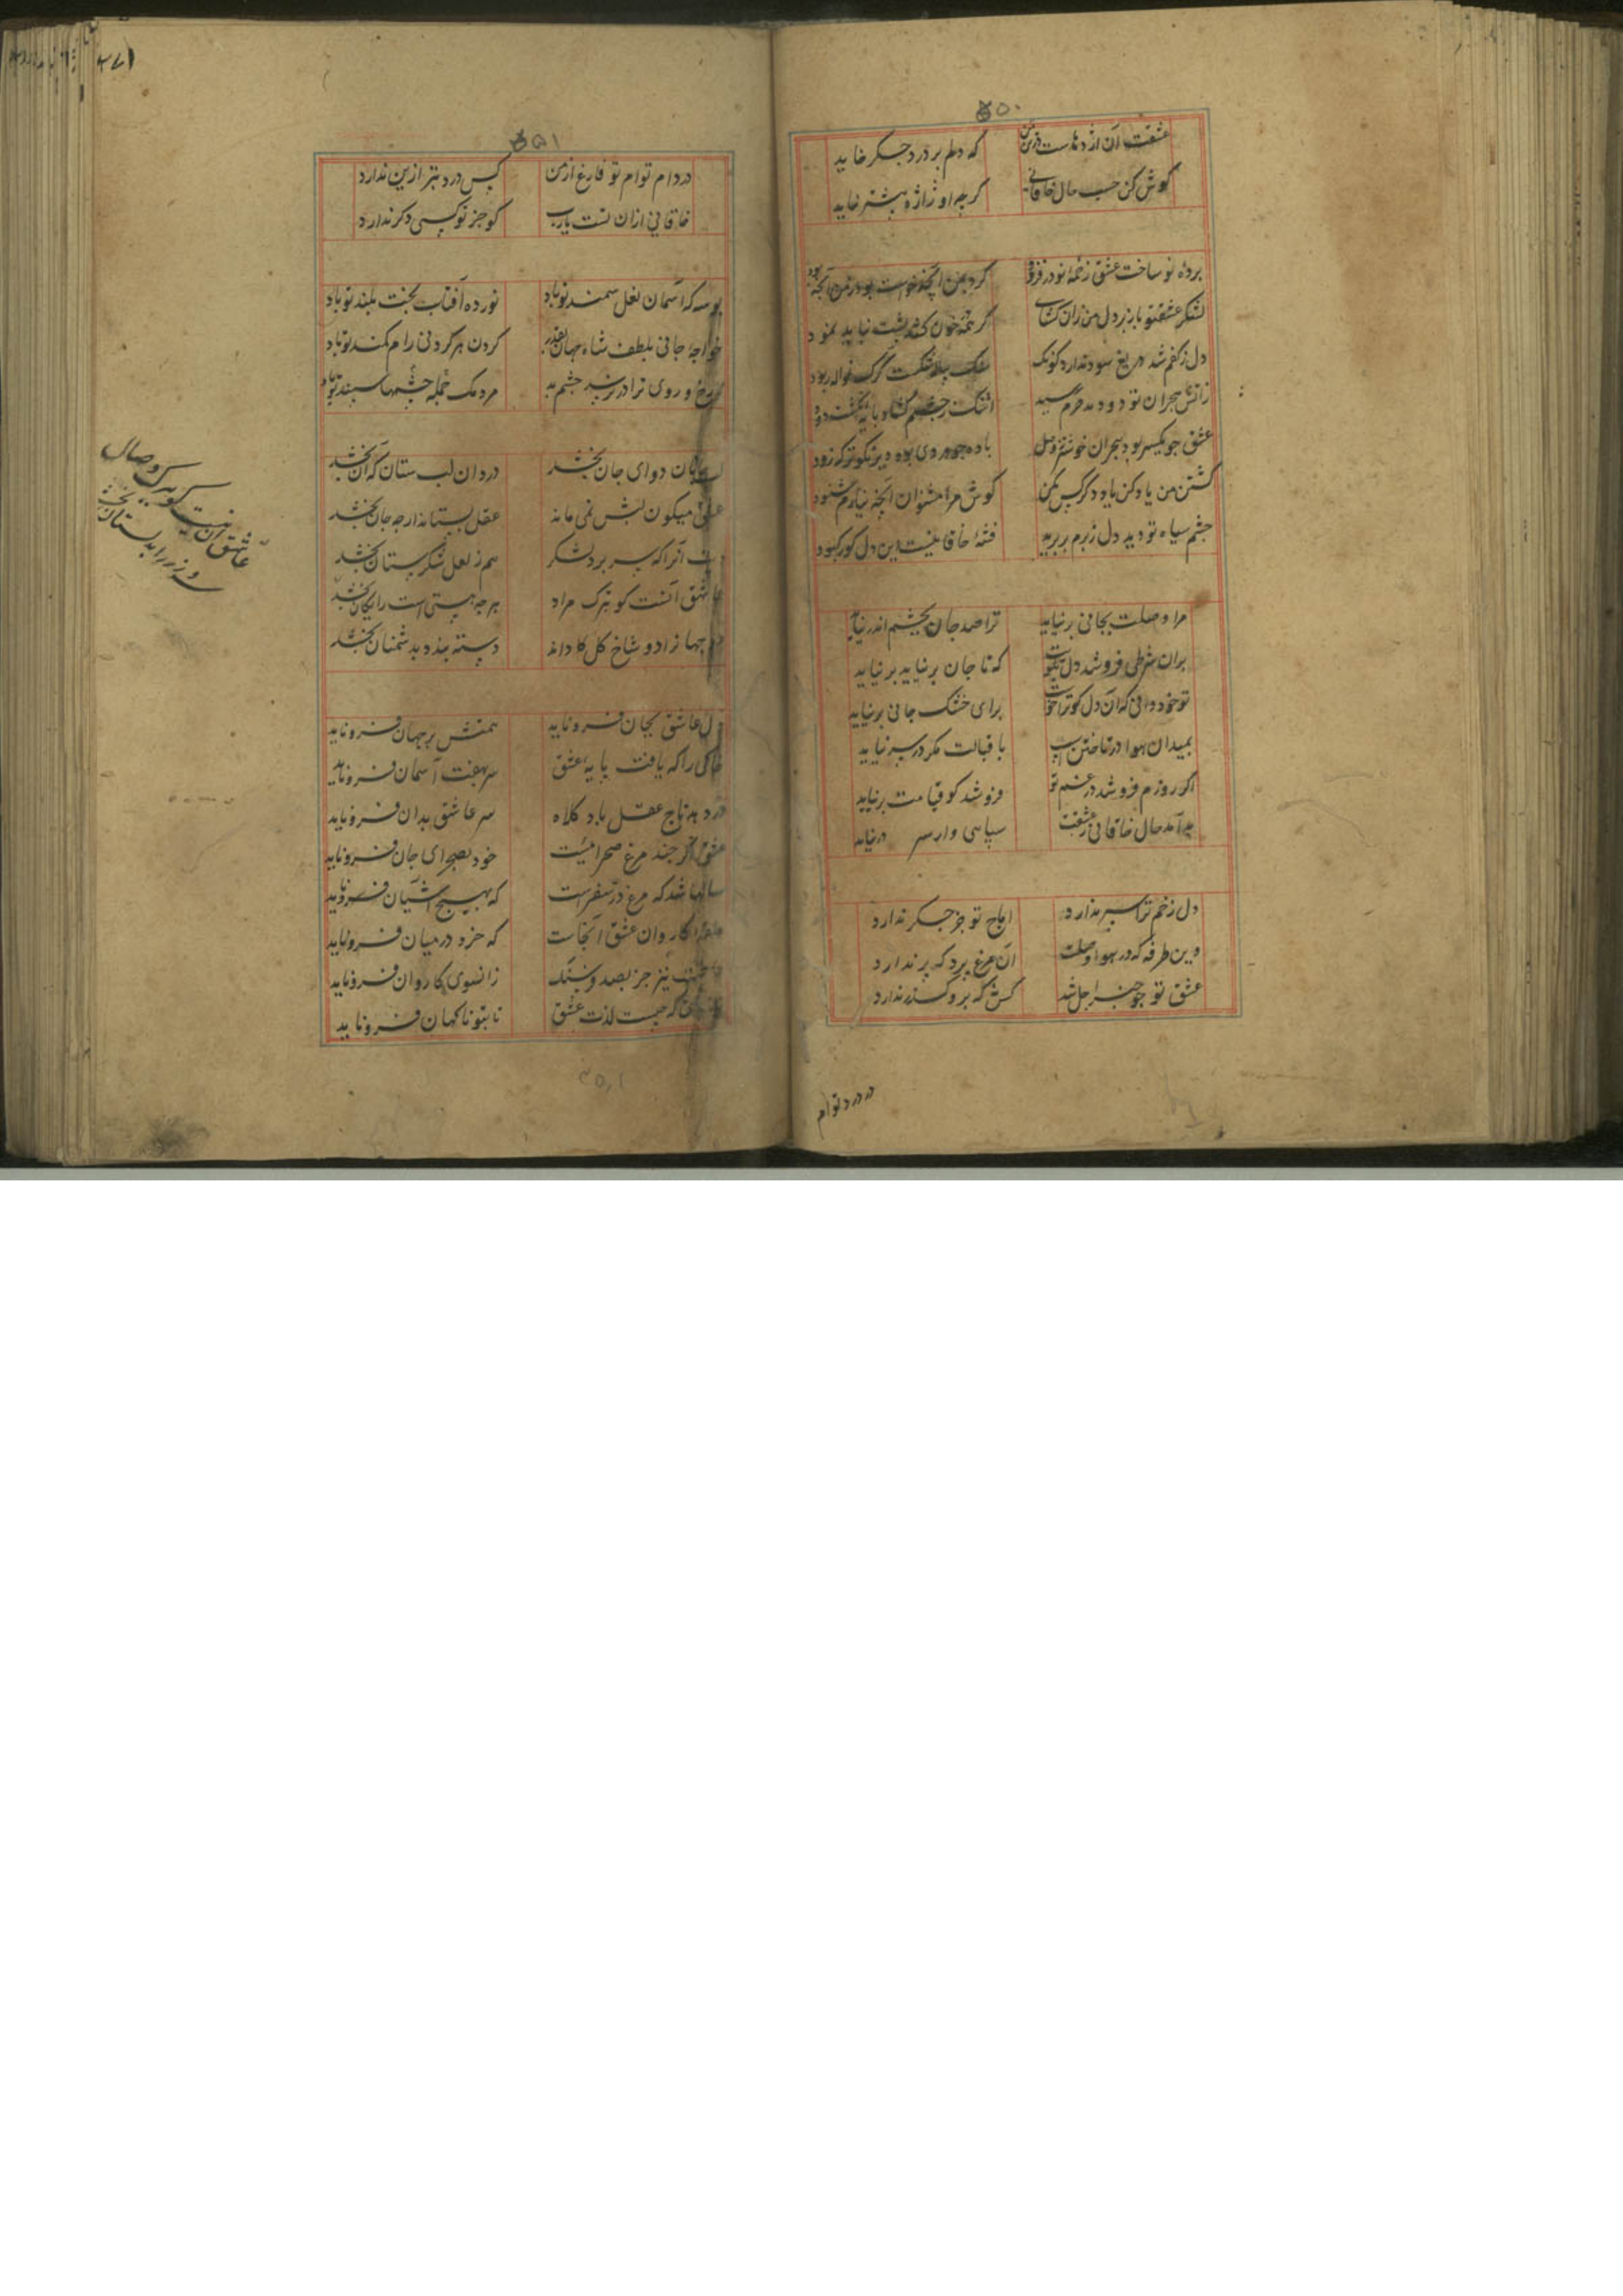 ۵۰
عشقت آن اژدهاست در من که دلم بر درد جگر خاید
کوش کن حسب حال خاقانی کرچه او ژاژ بیشتر خاید
پردهٔ نو ساخت عشق زخمهٔ نو در فزود کرد بمن آنچه خواست بود در من آنچه بود
لشکر عشق تو باز بر دل من ران کشای کر همه خون کشد پشت نیاید نمود
دل ز کفم شد دریغ سود ندارد کونک سنک بلا شکست کرک نواله ربود
زآتش هجران تو دود بدهرم رسید اشک ز چشم کشاد بانکشت دود
عشق چو یکسر بود هجران خوشتر ز وصل باده چو دردی بود دیر نکوتر که زود
کشتن من یاد کن یاد دکر کس مکن کوش مرا مشنوان آنچه نیارم شنود
چشم سیاه تو دید دل ز برم بر پرید فتنهٔ خاقانیست این دل کور کبود
مرا وصلت بجانی بر نیاید ترا صد جان بچشم اندر نیاید
بران شرطی فروشد دل بکویت که تا جان بر نیاید بر نیاید
تو خود دانی که آن دل کو ترا خواست برای خشک جانی بر نیاید
بمیدان هوا در تاختن اسپ باقبالت مکر در سر نیاید
اکر روزم فروشد در غم تو فروشد کو قیامت بر نیاید
بدآمد حال خاقانی ز عشقت سپاسی وار سر در نیاید
دل زخم ترا سپر ندارد آماج تو جز جکر ندارد
وین طرفه که در هوا وصلت آن مرغ پرد که پر ندارد
عشق تو چو چنبر اجل شد کس نیست که بر و کذر ندارد
در درد توام
۱۵۱
در دام توام تو فارغ از من کس درد بتر ازین ندارد
خاقانی ازان تست یارب کو جز تو کسی دکر ندارد
بوسه که آسمان نعل سمند تو باد نور ده آفتاب بخت بلند تو باد
خواجهٔ جانی بلطف شاه جهان کردن هر کردنی رام کمند تو باد
روی ترا در رسد چشم بد مردمک جمله چشمها سپند تو باد
لب جانان دوای جان بخشد درد ان لب ستان که آن بخشد
عشق میکون لبش نمی ماند عقل بستاند ارچه جان بخشد
آنرا که سر برد شکر هم ز لعل شکرستان بخشد
عاشق آنست کو بترک مراد هرچه هستی است رایکان بخشد
زاد و شاخ کل کا داند دسته بندد بدشمنان بخشد
عاشق آن نیست کو بیک وصال
دل عاشق بجان فرو ناید همتش بر جهان فرو ناید
خاکی را که یافت پایه عشق سر بهفت آسمان فرو ناید
درد هد تاج عقل باد کلاه سر عاشق بدان فرو ناید
عشق اکر چند مرغ صحرائیست خود بصحرای جان فرو ناید
سالها شد که مرغ در سفر است که بهیچ آشیان فرو ناید
کاروان عشق آنجاست که خرد در میان فرو ناید
نیز جز بصد فرسنک زانسوی کاروان فرو ناید
که چیست لذت عشق تا بتو ناکهان فرو ناید
۳۵۱